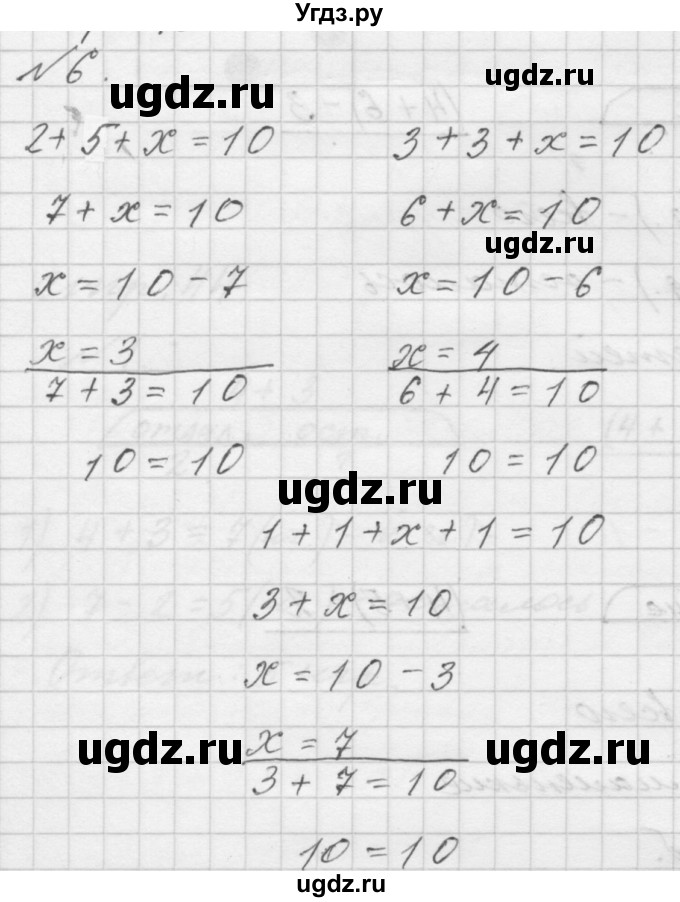 Угдз.ру
№6.
ugdz.ru ugdz.ru
2+5+x=10
7+x=10
x=10-7
x=3
7+3=10
10=10
3+3+x=10
6+x=10
ugdz.ru
x=10-6
x=4
6+4=10
10=10
ugdz.ru
1+1+x+1=10
3+x=10
ugdz.ru
x=10-3
x=7
ugdz.ru ugdz.ru
3+7=10
10=10
ugdz.ru